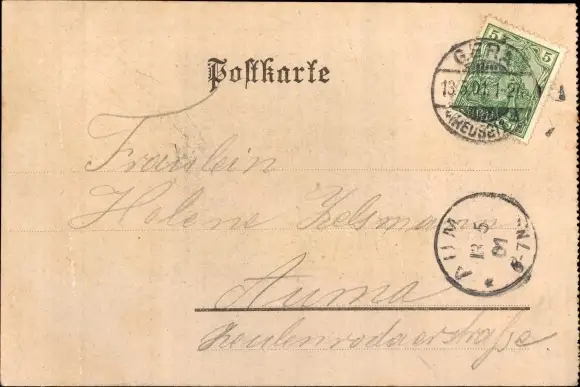 5 5
GERA
13.5.01. 1-2N.
(REUSS)
Postkarte
Fräulein
Helene Helsmann
AUMA
13 5 01
6-7N
Auma
Zeulenrodaerstraße